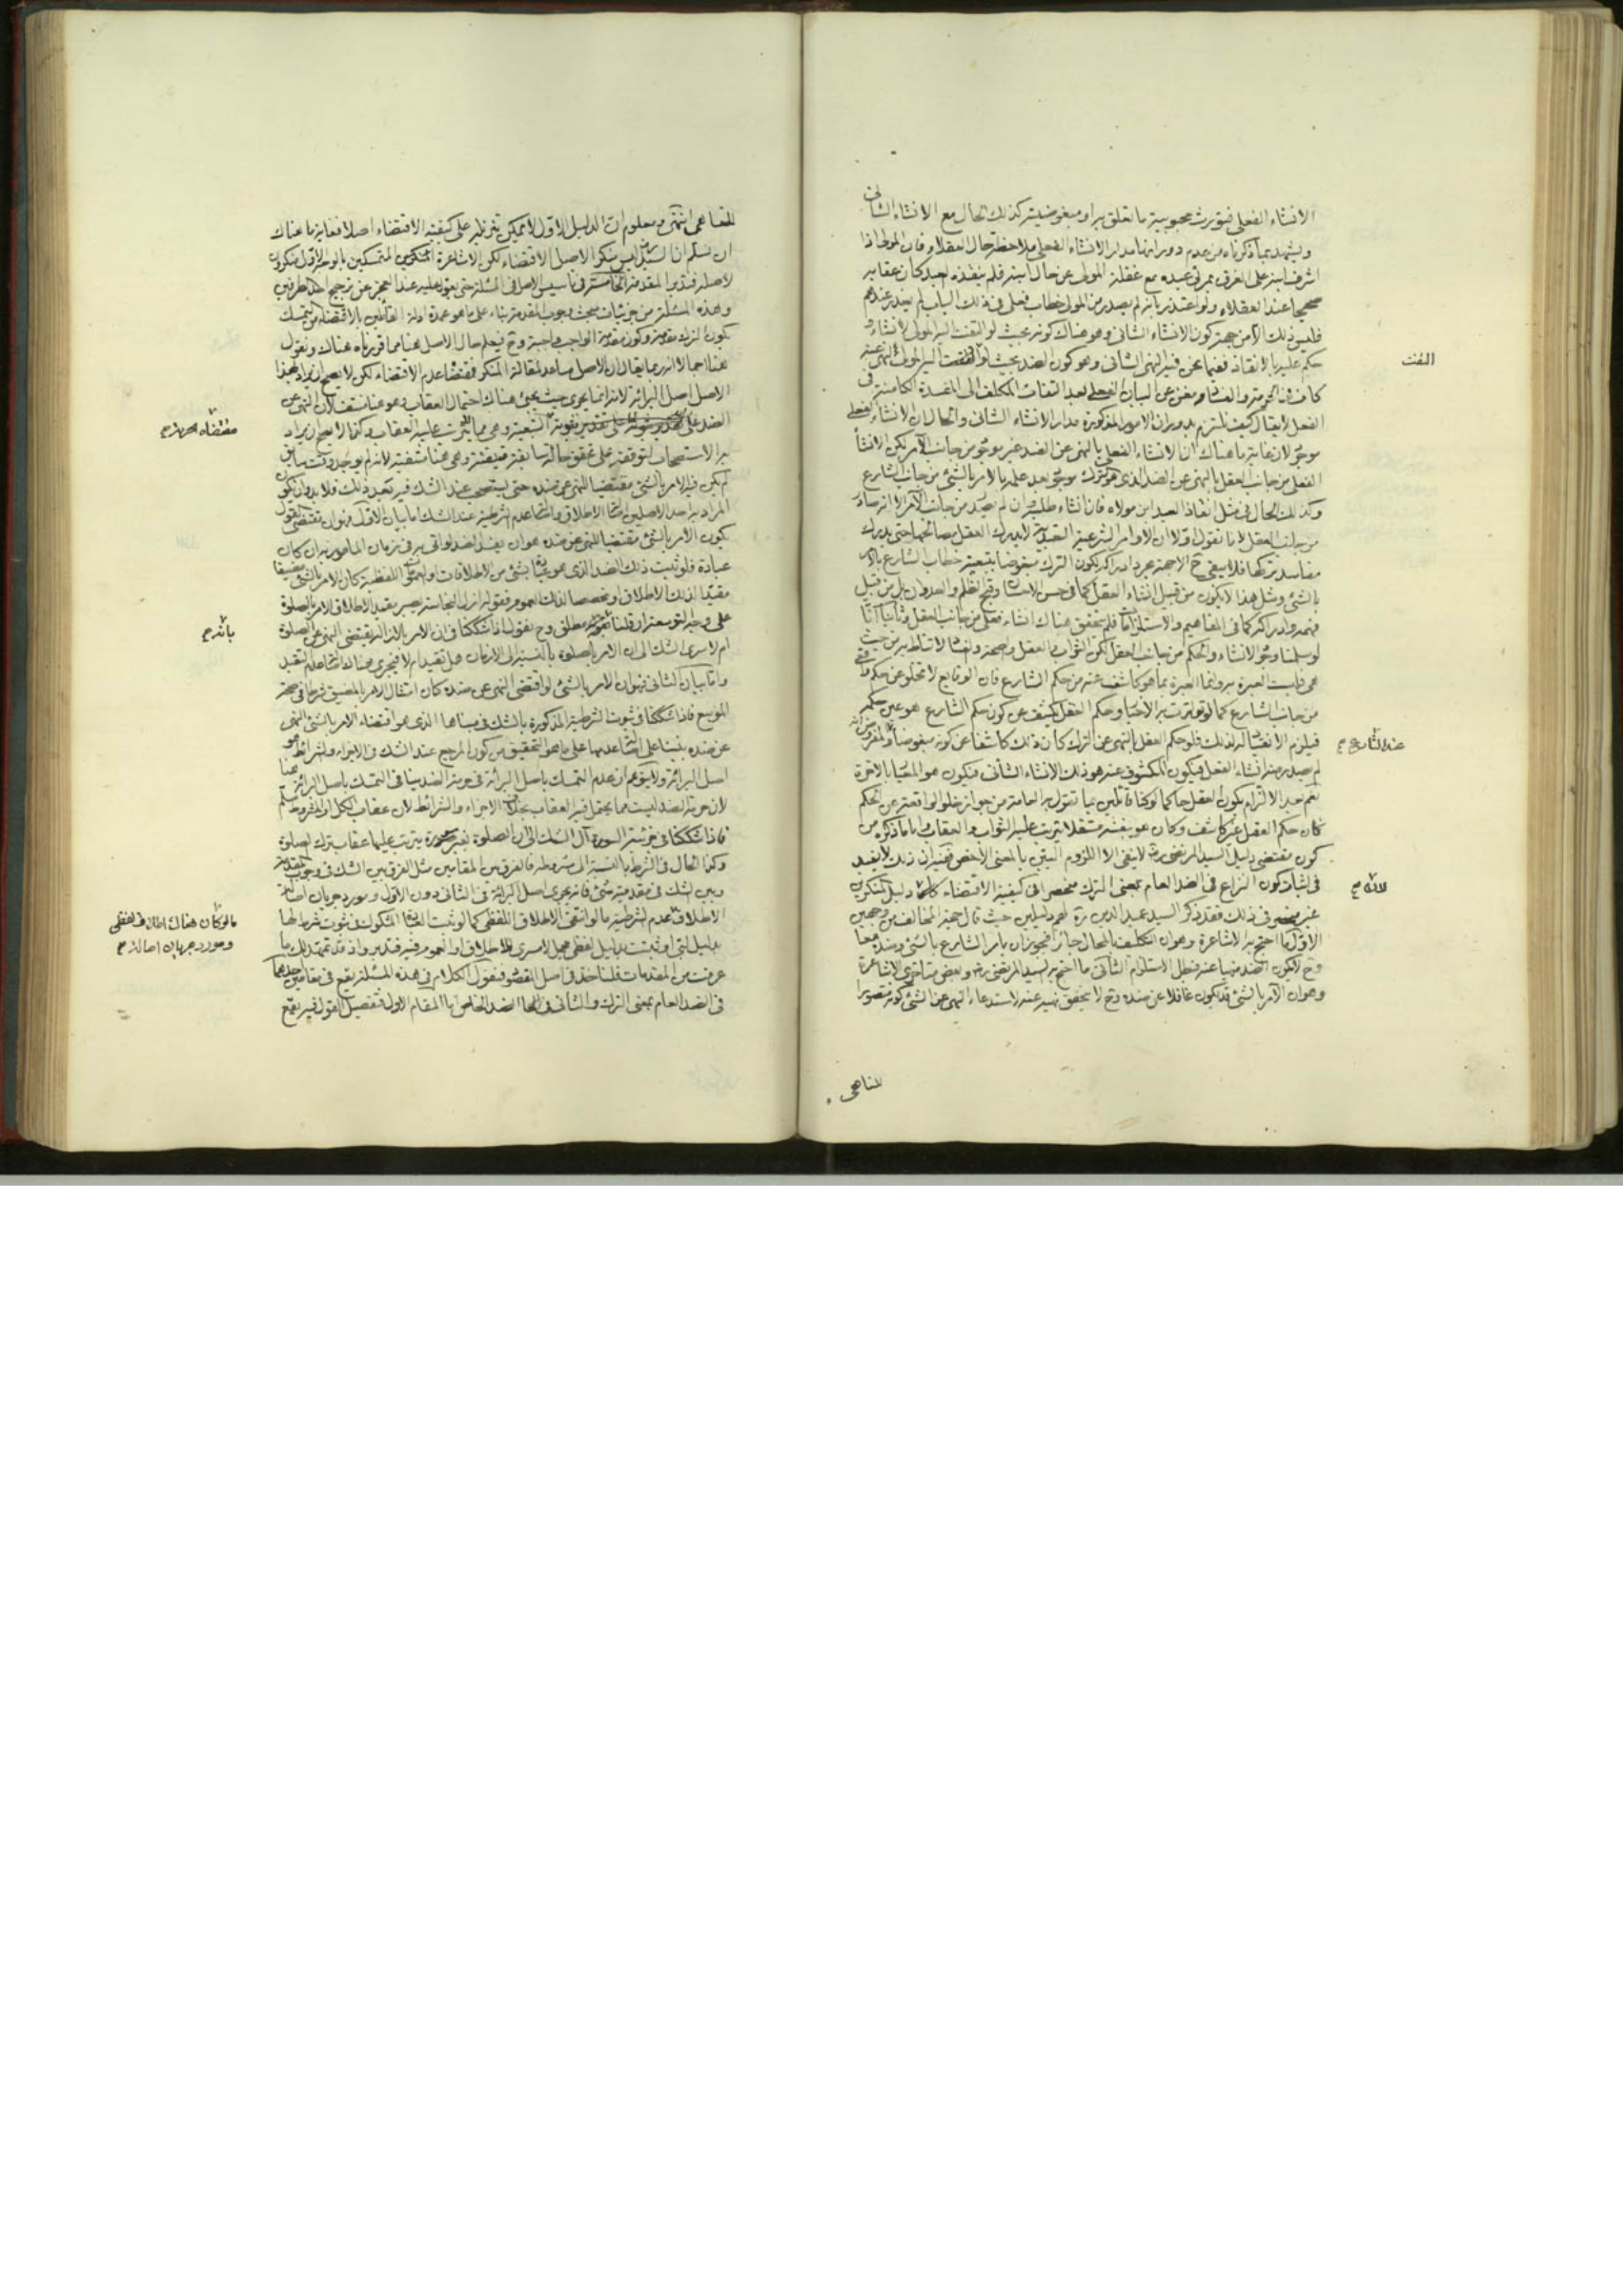 الانشاء الفعلي فيورث محبوبية ما تعلق به او مبغوضيته كذلك الحال مع الانشاء الشأنى
ويشهد بما ذكرناه من عدم دوران مدار الانشاء الفعلي ملاحظة حال العقلاء فان المولى اذا
اشرف ابنه على الغرق بمرئى عبده مع غفلة المولى عن حال ابنه فلم ينقذه العبد كان عقابه
صحيحا عند العقلاء ولو اعتذر بانه لم يصدر من المولى خطاب فعلى فى ذلك الباب لم يعذر عندهم
فليس ذلك الا من جهة كون الانشاء الشانى وهو هناك كونه بحيث لو التفت اليه المولى لانشاء و
حكم عليه بالانقاذ ففيما نحن فيه النهى الشانى وهو كون الضد بحيث لو التفت اليه المولى لنهى عنه
الفت
كاف فى الحرمة والفساد ومغن عن البيان الفعلي بعد التفات المكلف الى المفسدة الكامنة فى
الفعل لا يقال كيف نلتزم بدوران الامور المذكورة مدار الانشاء الشانى والحال ان الانشاء الفعلى
موجود لان غاية ما هناك ان الانشاء الفعلي بالنهى عن الضد غير موجود من جانب الآمر لكن الانشاء
الفعلى من جانب العقل بالنهى عن الضد الذى هو الترك موجود بعد علمه بالامر بالشئ من جانب الشارع
وكذلك الحال فى مثل انقاذ العبد ابن مولاه فان انشاء طلبه وان لم يصدر من جانب الآمر الا انه صادر
من جانب العقل لانا نقول اولا ان الاوامر الشرعية التعبدية لا يدرك العقل مصالحها حتى يدرك
مفاسد تركها فلا يبقى ح الا جهة مجرد ادراكه لكون الترك مبغوضا بتبعية خطاب الشارع بالامر
بالشئ ومثل هذا لا يكون من قبيل انشاء العقل كما فى حسن الاحسان وقبح الظلم والعدوان بل من قبيل
فهمه وادراكه كما فى المفاهيم والاستلزامات فلم يتحقق هناك انشاء فعلى من جانب العقل وثانيا انا
لو سلمنا وجود الانشاء والحكم من جانب العقل لكن الثواب والعقل والصحة والفساد لا تناط به من حيث
هى فليست العبرة به وانما العبرة بما هو كاشف عنه من حكم الشارع فان الوقايع لا تخلو عن حكم واقعى
من جانب الشارع كما تواترت به الاخبار وحكم العقل يكشف عن كون حكم الشارع هو عين حكمه
فيلزم الانقياد له لذلك فلو حكم العقل بالنهى عن الترك كان ذلك كاشفا عن كونه مبغوضا والمفروض انه
عند الشارع م
لم يصدر منه انشاء الفعل فيكون المكشوف عنه هو ذلك الانشاء الشانى فيكون هو المعيار بالاخرة
نعم بعد الالتزام بكون العقل حاكما لو كنا قائلين بما تقول به العامة من جواز خلو الواقعة عن الحكم
كان حكم العقل غير كاشف وكان هو بنفسه مستقلا يترتب عليه الثواب والعقاب واما ما ذكره من
كون مقتضى دليل السيد المرتضى ره لا ينفى الا اللزوم البين بالمعنى الاخص ففيه ان ذلك لا يفيد
فى اثبات كون النزاع فى الضد العام بمعنى الترك منحصرا فى كيفية الاقتضاء كما دليل المنكرين
لانه م
غير منحصر فى ذلك فقد ذكر السيد عميد الدين ره لهم دليلين حيث قال احتج المخالف من وجهين
الاول ما احتج به الاشاعرة وهو ان التكليف بالمحال جائز فيجوز ان يامر الشارع بالشئ وضده معا
وح لا يكون الضد منهيا عنه فبطل الاستلزام الثانى ما احتج به السيد المرتضى ره وبعض متاخرى الاشاعرة
وهو ان الآمر بالشئ قد يكون غافلا عن ضده وح لا يتحقق نهيه عنه لاستدعاء النهى عن الشئ كونه متصورا
للناهى
للناهى انتهى ومعلوم ان الدليل الاول لا يمكن تنزيله على كيفية الاقتضاء اصلا فغاية ما هناك
ان نسلم ان السيد ره ليس منكرا لاصل الاقتضاء لكن الاشاعرة المنكرين المتمسكين بالوجه الاول منكرون
لاصله فتدبر المقدمة الخامسة فى تاسيس الاصل فى المسئلة حتى يعول عليه عند العجز عن ترجيح احد الطرفين
وهذه المسئلة من جزئيات مبحث وجوب المقدمة بناء على ما هو عمدة ادلة القائلين بالاقتضاء من التمسك
بكون الترك مقدمة وكون مقدمة الواجب واجبة وح فيعلم حال الاصل هنا مما قررناه هناك ونقول
هنا اجمالا انه ربما يقال ان الاصل مساعد لمقالة المنكر فمقتضاه عدم الاقتضاء لكن لا يصح ان يراد بهذا
الاصل اصل البرائة لانه انما يجرى حيث يجئ هناك احتمال العقاب وهو هنا منتف لان النهى عن
الضد على تقدير ثبوته التبعية وهى مما لا يترتب عليه العقاب وكذا لا يصح ان يراد
مقتضاه م
به الاستصحاب لتوقفه على تحقق حالة سابقة متيقنة وهى هنا منتفية لانه لم يوجد وقت سابق
لم يكن فيه الامر بالشئ مقتضيا للنهى عن ضده حتى يستصحب عند الشك فيه بعد ذلك فلا بد وان يكون
المراد به احد الاصلين اصالة الاطلاق واصالة عدم الشرطية عند الشك اما بيان الاول فهو ان مقتضى القول
بكون الامر بالشئ مقتضيا للنهى عن ضده هو ان يفسد الضد لو اتى به فى زمان المامور به ان كان
عبادة فلو ثبت ذلك الضد الذى هو عبادة بشئ من الاطلاقات او العمومات اللفظية كان الامر بالشئ مضيقا
مقيدا لذلك الاطلاق او مخصصا لذلك العموم فقوله ازل النجاسة يصير مقيد الاطلاق الامر بالصلوة
على وجه التوسعة ان قلنا مطلق وح نقول اذا شككنا فى ان الامر بالازالة يقتضى النهى عن الصلوة
بانه م
ام لا سرى الشك الى ان الامر بالصلوة بالنسبة الى الازمان هل تقيد ام لا فيجرى هناك اصالة عدم التقيد
واما بيان الثانى فهو ان الامر بالشئ لو اقتضى النهى عن ضده كان امتثال الامر بالمضيق شرطا فى صحة
الموسع فاذا شككنا فى ثبوت الشرطية المذكورة بالشك فى مبناها الذى هو اقتضاء الامر بالشئ النهى
عن ضده بنينا على اصالة عدمها على ما هو التحقيق من كون المرجع عند الشك فى الاجزاء والشرائط هو
اصل البرائة ولا يتوهم ان عدم التمسك باصل البرائة فى حرمة الضد ينافى التمسك باصل البرائة هنا
لان حرمة الضد ليست مما يحتمل فيه العقاب بخلاف الاجزاء والشرائط لان عقاب الكل او المشروط مسلم
فاذا شككنا فى جزئية السورة آل الشك الى ان الصلوة بغير سورة يترتب عليها عقاب ترك الصلوة
وكذا الحال فى الشرط بالنسبة الى مشروطه فالفرق بين المقامين مثل الفرق بين الشك فى وجوب المقدمة
وبين الشك فى مقدمية شئ فانه يجرى اصل البرائة فى الثانى دون الاول ومورد جريان اصالة
الاطلاق عدم الشرطية ما لو انتفى الاطلاق اللفظى كما لو ثبت العبادة المشكوك فى ثبوت شرط لها
ما لو كان هناك اطلاق لفظى
ومورد جريان اصالة م
بدليل لبى او ثبت بدليل لفظى مجمل لا سرى للاطلاق او العموم فيه فتدبر واذ قد تمهد لك ما
عرفت من المقدمات فلناخذ فى اصل المقصود فنقول الكلام فى هذه المسئلة يقع فى مقامين احدهما
فى الضد العام بمعنى الترك والثانى فى الضد الخاص اما المقام الاول فتفصيل القول فيه يقع